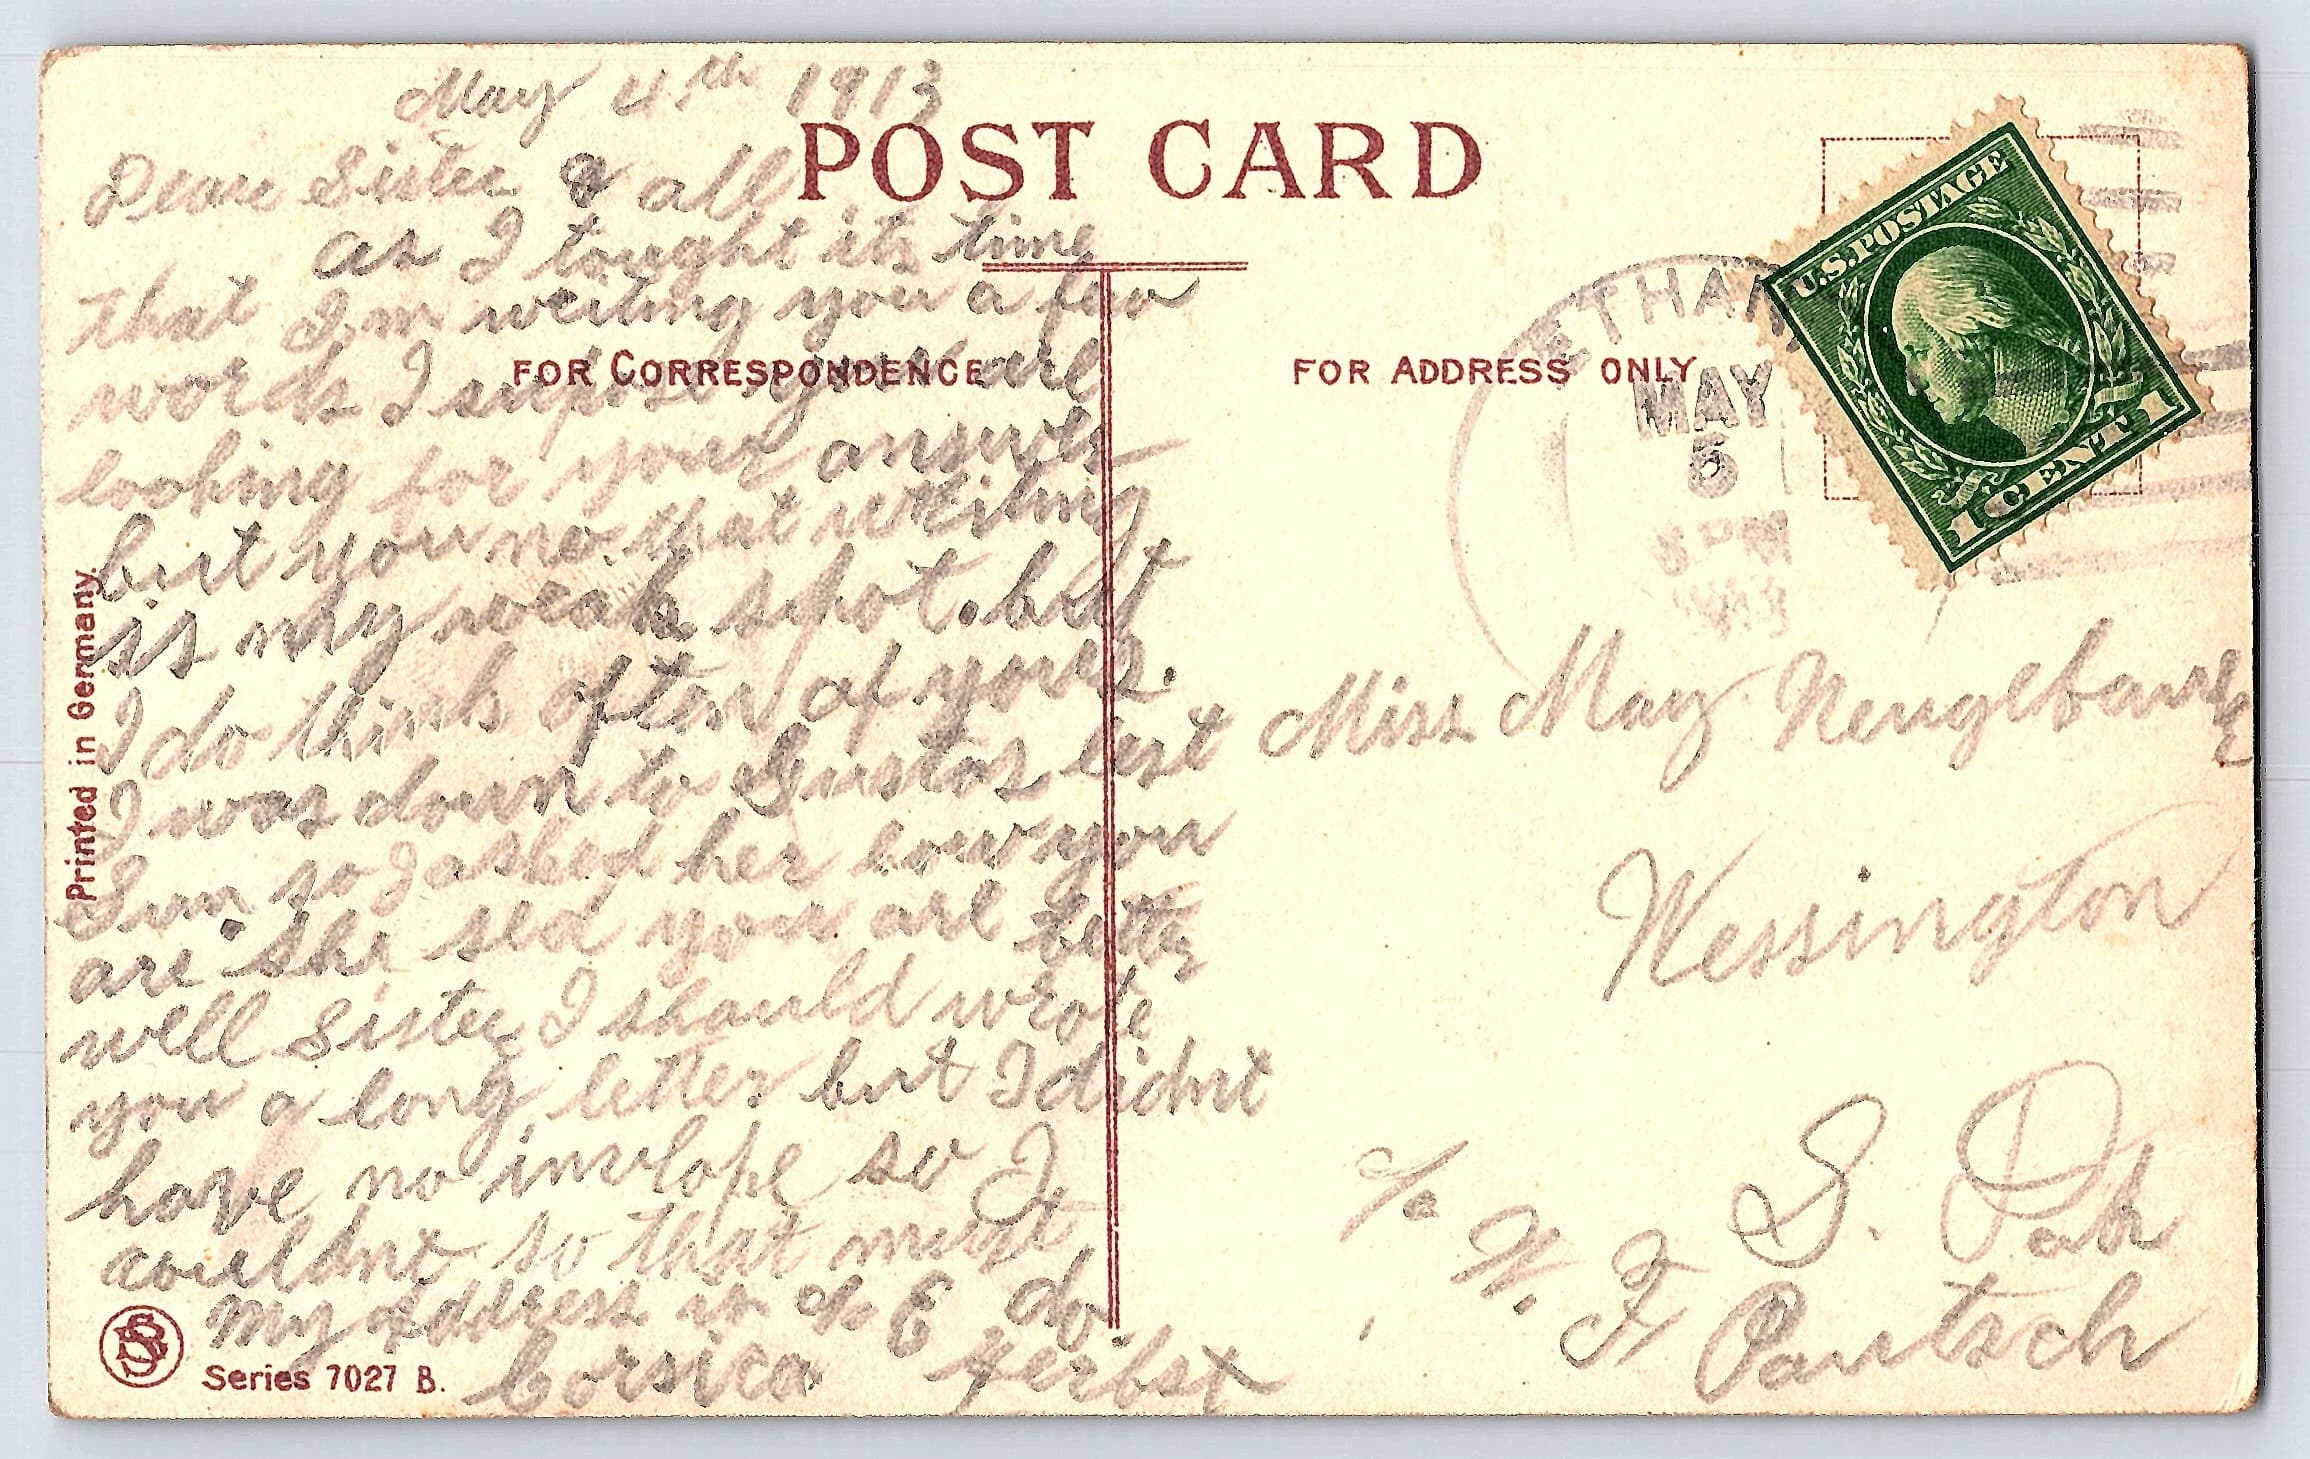 May 4th 1913
POST CARD
Dear Sister & all
as I tought its time
that I,m writing you a few
words I supose you are
FOR CORRESPONDENCE
looking for your answer
but you no that writing
is my weak spot. but
I do think often of yous.
I was down to Gustas last
Sun so I asked her how you
are. She sed you are better
well Sister I should wrote
you a long letter but I didnt
have no invelope so I
couldnt so that must do.
My address is % E Herbst
Corsica
Printed in Germany.
Series 7027 B.
FOR ADDRESS ONLY
ETHAN
MAY
5
PM
U.S. POSTAGE
1 CENT 1
Miss May
Wessington
S. Dak
% W. F. Pautsch